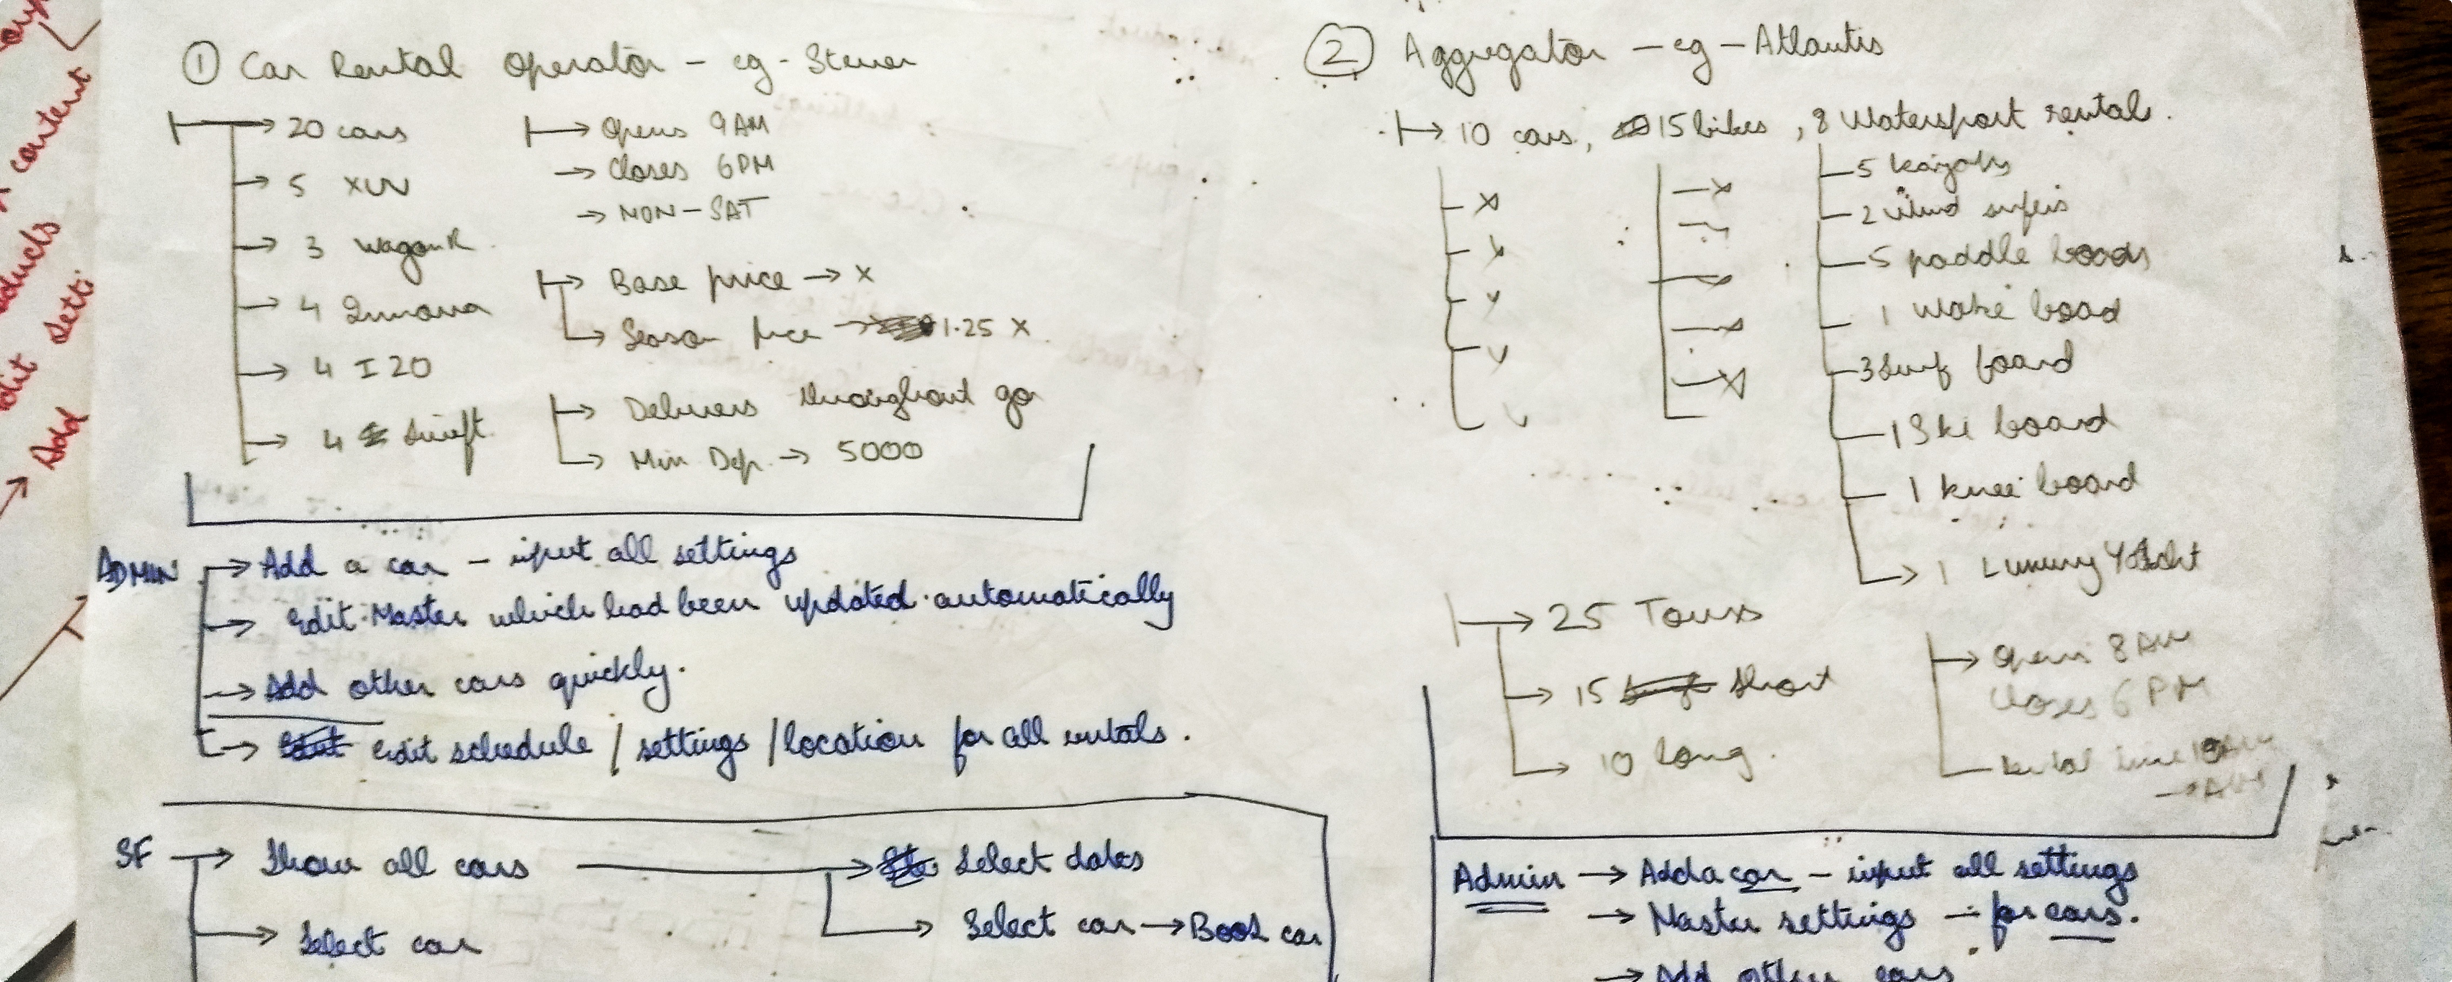 ① Car Rental Operator - eg - Steven
→ 20 cars
→ 5 XUV
→ 3 WagonR
→ 4 Innova
→ 4 I20
→ 4 Swift
→ Opens 9AM
→ Closes 6PM
→ MON-SAT
→ Base price → x
→ Season price → 1.25 x
→ Delivers throughout goa
→ Min Dep. → 5000
ADMIN → Add a car - input all settings
→ Edit Master which had been updated automatically
→ Add other cars quickly.
→ Edit schedule / settings / location for all rentals.
SF → Show all cars → Select dates
→ Select car → Book car
→ Select car
② Aggregator - eg - Atlantis
→ 10 cars, 15 bikes, 8 Watersport rental.
5 kayaks
2 wind surfers
5 paddle boards
1 wake board
3 Surf board
1 Ski board
1 knee board
→ 1 Luxury Yacht
→ 25 Tours
→ 15 Short
→ 10 long.
→ Opens 8 AM
Closes 6 PM
Rental time
Admin → Add a car - input all settings
→ Master settings - for cars.
→ Add other cars
content
Add